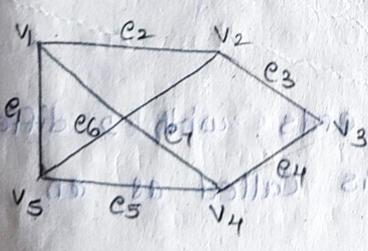 V1 e2 V2
e3
e1 e6 e7 V3
e4
V5 e5 V4